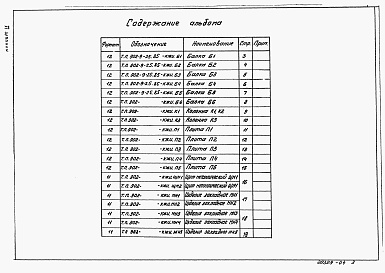 Содержание альбома
Формат Обозначение Наименование Стр. Прим.
12 Т.П. 902-9-25.85 -КЖИ.Б1 Балка Б1 3
12 Т.П. 902-9-25.85 -КЖИ.Б2 Балка Б2 4
12 Т.П. 902-9-25.85 -КЖИ.Б3 Балка Б3 5
12 Т.П. 902-9-25.85 -КЖИ.Б4 Балка Б4 6
12 Т.П. 902-9-25.85 -КЖИ.Б5 Балка Б5 7
12 Т.П. 902- -КЖИ.Б6 Балка Б6 8
12 Т.П. 902- -КЖИ.К1 Колонна К1, К2 9
12 Т.П. 902- -КЖИ.К3 Колонна К3 10
12 Т.П. 902- -КЖИ.П1 Плита П1 11
12 Т.П. 902- -КЖИ.П2 Плита П2 12
12 Т.П. 902- -КЖИ.П3 Плита П3 13
12 Т.П. 902- -КЖИ.П4 Плита П4 14
12 Т.П. 902- -КЖИ.П5 Плита П5 15
11 Т.П. 902- -КЖИ.ЩМ1 Щит металлический ЩМ1 16
11 Т.П. 902- -КЖИ.ЩМ2 Щит металлический
11 Т.П. 902- -КЖИ.МН1 Изделие закладное МН1 17
11 Т.П. 902- -КЖИ.МН2 Изделие закладное МН2
11 Т.П. 902- -КЖИ.МН3 Изделие закладное МН3 18
11 Т.П. 902- -КЖИ.МН4 Изделие закладное МН4
11 Т.П. 902- -КЖИ.МН5 Изделие закладное МН5 19